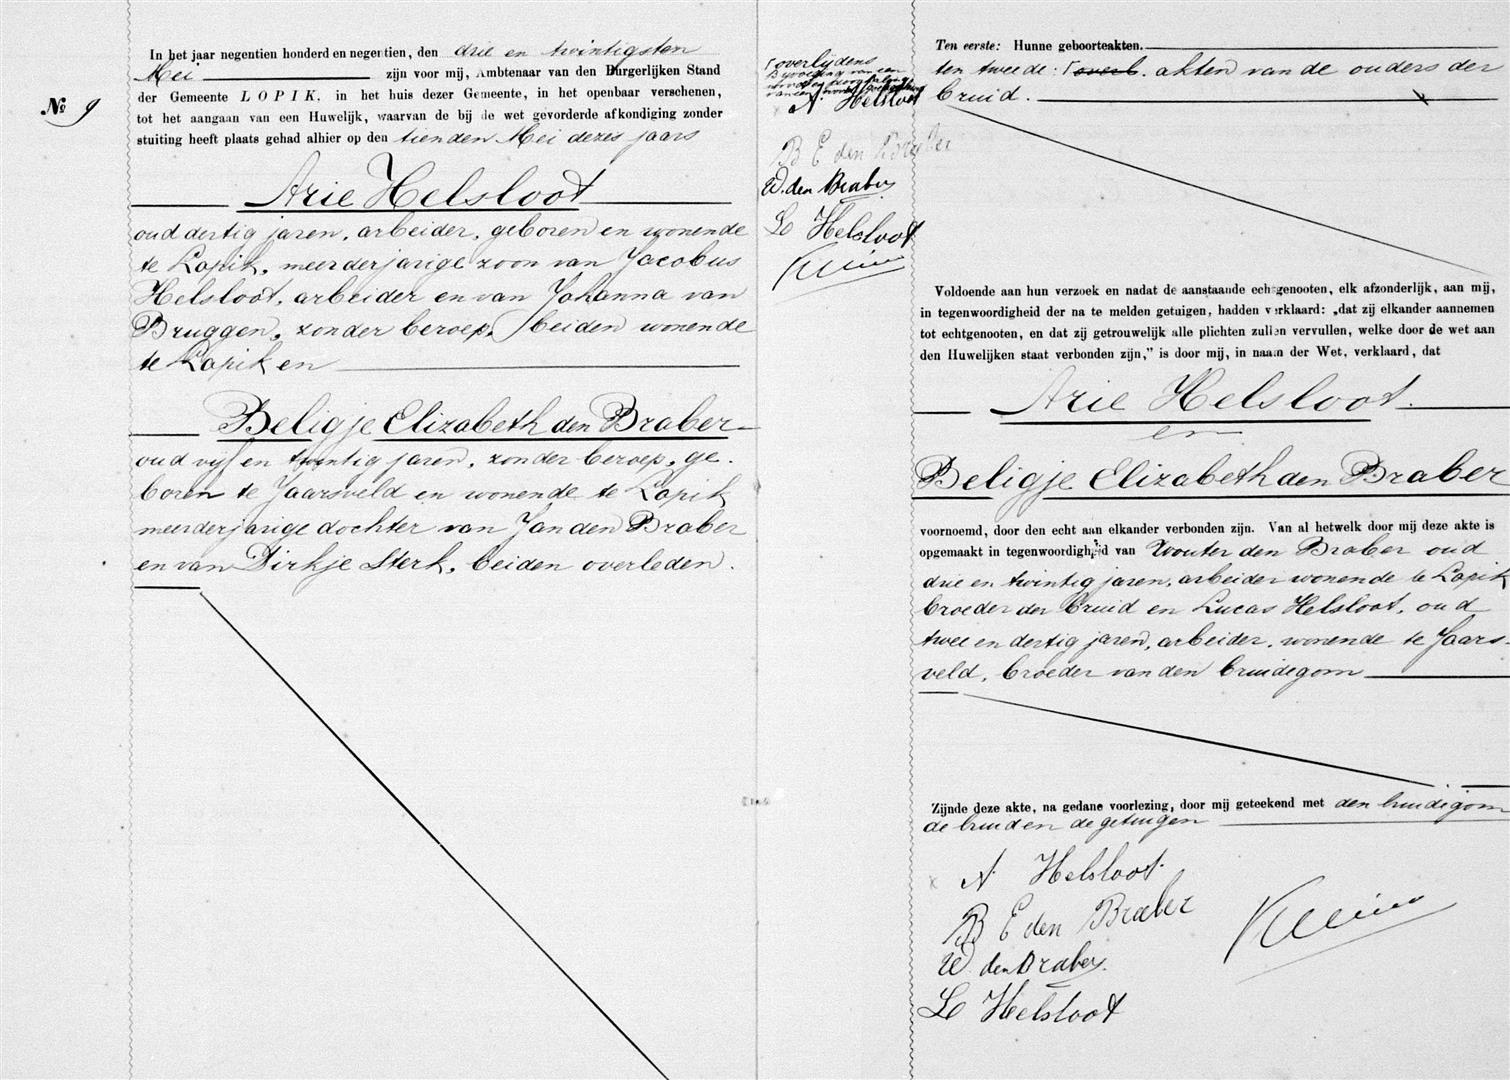 In het jaar negentien honderd en negentien, den drie en twintigsten
Mei zijn voor mij, Ambtenaar van den Burgerlijken Stand
der Gemeente LOPIK, in het huis dezer Gemeente, in het openbaar verschenen,
tot het aangaan van een Huwelijk, waarvan de bij de wet gevorderde afkondiging zonder
stuiting heeft plaats gehad alhier op den tienden Mei dezes jaars
№ 9
Arie Helsloot
oud dertig jaren, arbeider, geboren en wonende
te Lopik, meerderjarige zoon van Jacobus
Helsloot, arbeider en van Johanna van
Bruggen, zonder beroep, beiden wonende
te Lopik en
Beligje Elizabeth den Braber
oud vijf en twintig jaren, zonder beroep, ge-
boren te Jaarsveld en wonende te Lopik
meerderjarige dochter van Jan den Braber
en van Dirkje Sterk, beiden overleden.
overlijdens
Bijvoeging van een
woord
A. Helsloot
B E den Braber
W. den Braber
L Helsloot
Ten eerste: Hunne geboorteakten.
ten tweede: overl. akten van de ouders der
bruid.
Voldoende aan hun verzoek en nadat de aanstaande echtgenooten, elk afzonderlijk, aan mij,
in tegenwoordigheid der na te melden getuigen, hadden verklaard: „dat zij elkander aannemen
tot echtgenooten, en dat zij getrouwelijk alle plichten zullen vervullen, welke door de wet aan
den Huwelijken staat verbonden zijn,” is door mij, in naam der Wet, verklaard, dat
Arie Helsloot.
en
Beligje Elizabeth den Braber
voornoemd, door den echt aan elkander verbonden zijn. Van al hetwelk door mij deze akte is
opgemaakt in tegenwoordigheid van Wouter den Braber oud
drie en twintig jaren, arbeider wonende te Lopik
broeder der bruid en Lucas Helsloot, oud
twee en dertig jaren, arbeider, wonende te Jaars-
veld, broeder van den bruidegom
Zijnde deze akte, na gedane voorlezing, door mij geteekend met den bruidegom
de bruid en de getuigen
A Helsloot.
B E den Braber
W den Braber.
L Helsloot